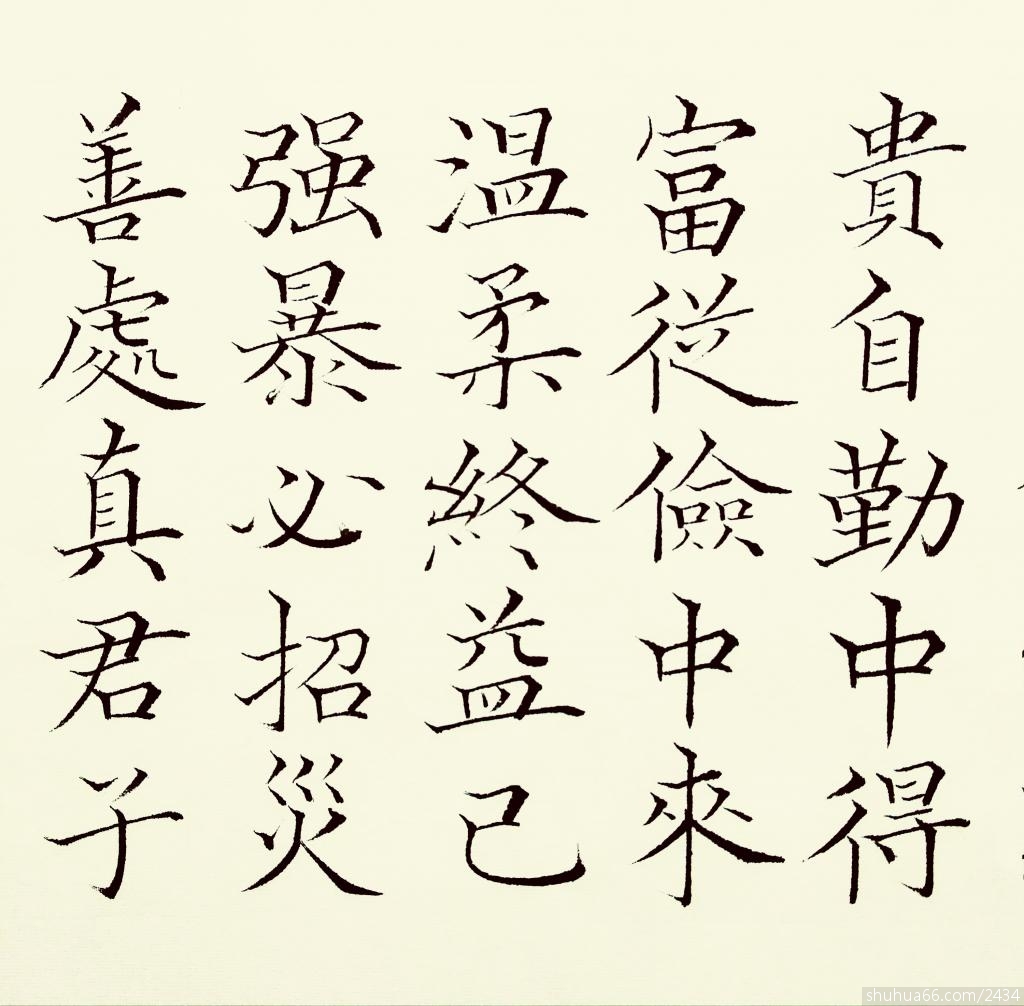 貴自勤中得
富從儉中來
溫柔終益己
强暴必招災
善處真君子
shuhua66.com/2434